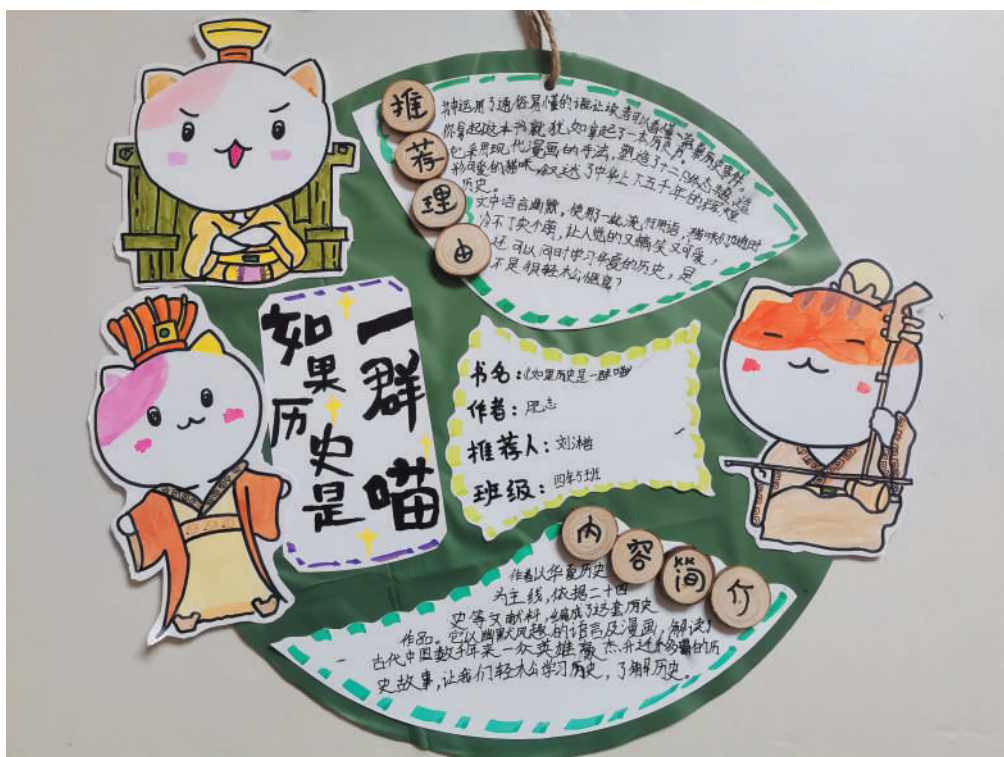 推荐理由
书中运用了通俗易懂的语让读者可以看懂一些历史事件。
你拿起这本书就犹如拿起了一本历史书。
它采用现代漫画的手法,塑造了十二只体态
形可爱的猫咪,叙述了中华上下五千年的辉煌
历史。
文中语言幽默,使用一些流行用语,猫咪们也时
冷不丁卖个萌,让人觉的又搞笑又可爱,
还可以同时学习华夏的历史,是
不是很轻松惬意?
如果历史是
一群喵
书名:《如果历史是一群喵》
作者:肥志
推荐人:刘
班级:四年5班
内容简介
作者以华夏历史
为主线,依据二十四
史等文献料,编成了这套历史
作品。它以幽默风趣的语言及漫画,解读了
古代中国数千年来一众英雄豪杰并逐的历
史故事,让我们轻松学习历史,了解历史。